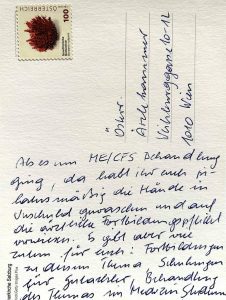 ÖSTERREICH
100
Österr.
Ärztekammer
Weihburggasse 10-12
1010 Wien
Als es um ME/CFS Behandlung
ging, da habt ihr euch
die Hände in
Unschuld gewaschen und auf
die ärztliche Fortbildungspflicht
verwiesen. Es gibt aber
für euch: Fortbildungen
zu diesem Thema Schulungen
für Behandlung
des Themas im Medizinstudium